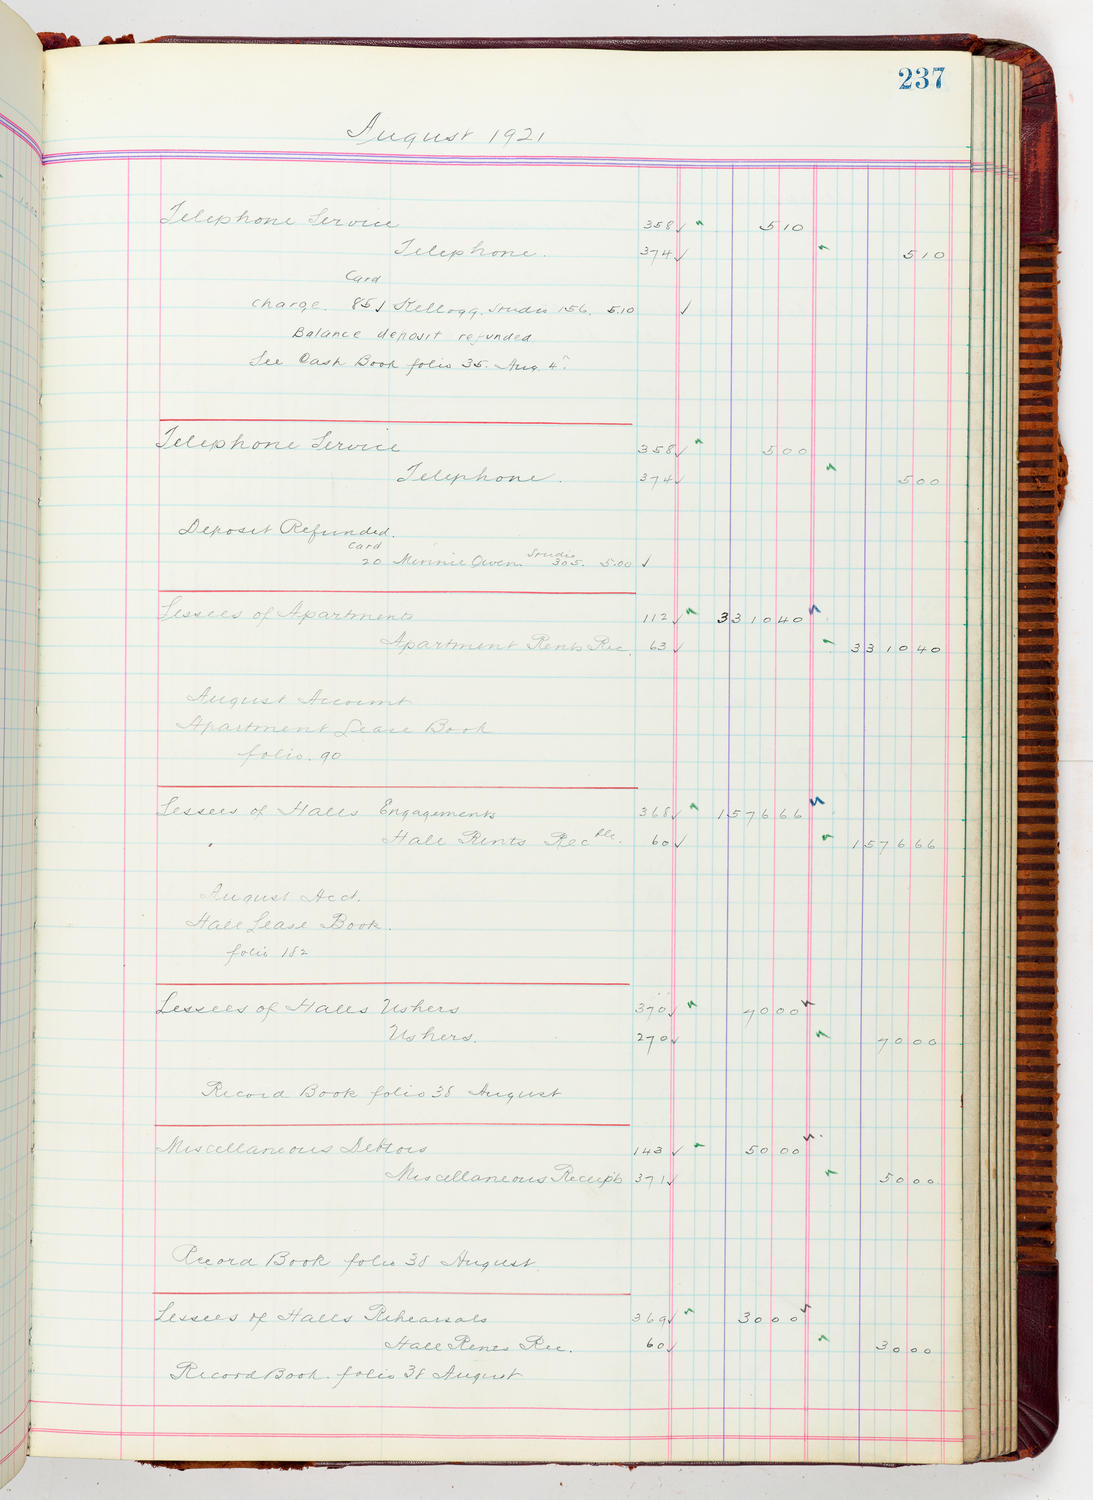 237
August 1921
Telephone Service 358 ✓ 510
Telephone. 374 ✓ 510
Card
charge. 85 ✓ Kellogg. Studio 156. 5.10 ✓
Balance deposit refunded
See Cash Book folio 35. Aug. 4
Telephone Service 358 ✓ 500
Telephone. 374 ✓ 500
Deposit Refunded.
Card
20 Minnie Owen. Studio 305. 5.00 ✓
Lessees of Apartments 112 ✓ 331040
Apartment Rents Rec. 63 ✓ 331040
August Account
Apartment Lease Book
folio. 90
Lessees of Halls Engagements 368 ✓ 157666
Hall Rents Rec ble. 60 ✓ 157666
August Acct.
Hall Lease Book.
folio 182
Lessees of Halls Ushers 370 ✓ 7000
Ushers. 270 ✓ 7000
Record Book folio 38 August
Miscellaneous Debtors 143 ✓ 5000
Miscellaneous Receipts 371 ✓ 5000
Record Book folio 38 August.
Lessees of Halls Rehearsals 369 ✓ 3000
Hall Rents Rec. 60 ✓ 3000
Record Book. folio 38 August